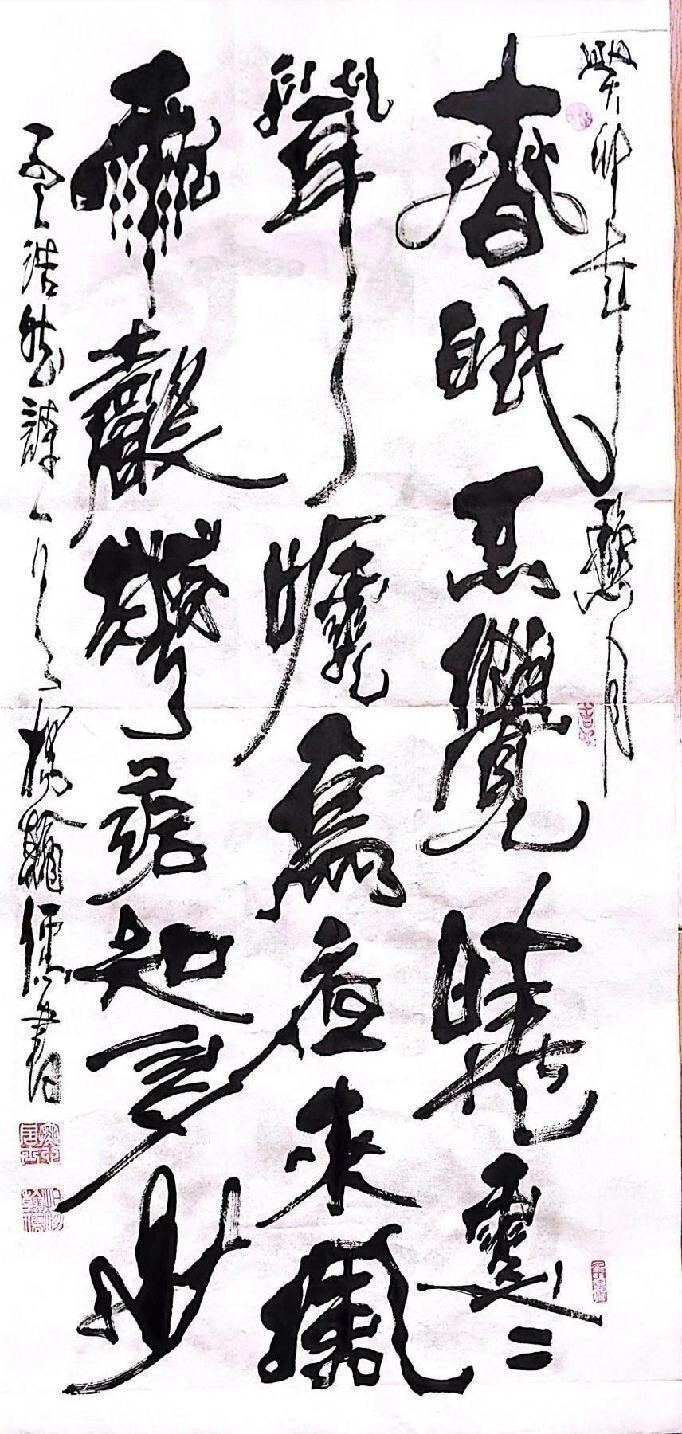 癸卯年月
春眠不覺曉處二
聞啼鳥夜來風
雨聲花落知多少
孟浩然詩一首楊翰儒書